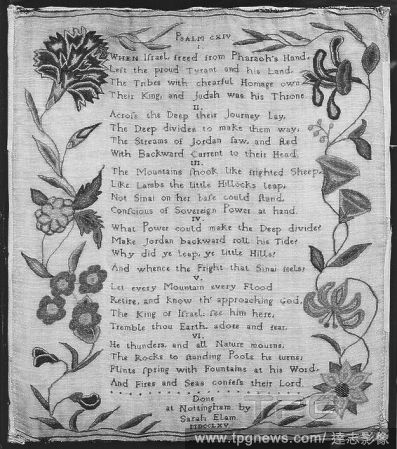 PSALM CXIV
I.
WHEN Israel, freed from Pharaoh's Hand,
Left the proud Tyrant and his Land,
The Tribes with chearful Homage own
Their King, and Judah was his Throne.
II.
Across the Deep their Journey Lay,
The Deep divides to make them way,
The Streams of Jordan saw, and Red
With Backward Current to their Head.
III.
The Mountains shook like frighted Sheep,
Like Lambs the little Hillocks leap,
Not Sinai on her base could stand,
Conscious of Sovereign Power at hand.
IV.
What Power could make the Deep divide?
Make Jordan backward roll his Tide?
Why did ye leap, ye little Hills?
And whence the Fright that Sinai feels?
V.
Let every Mountain every Flood
Retire, and know th' approaching God,
The King of Israel: see him here,
Tremble thou Earth, adore and fear.
VI.
He thunders, and all Nature mourns,
The Rocks to standing Pools he turns;
Flints spring with Fountains at his Word,
And Fires and Seas confess their Lord.
Done
at Nottingham by
Sarah Elam
MDCCLXV
TPG
www.tpgnews.com/ 達志影像